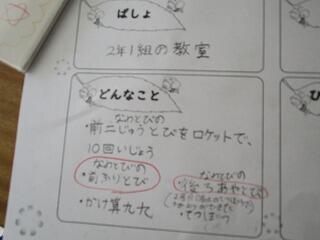 ばしょ
2年1組の教室
どんなこと
なわとびの
・前二じゅうとびをロケットで、
10回いじょう
なわとびの
・前ふりとび
なわとびの
・後ろあやとび
・かけ算九九
・てつぼう
ひ